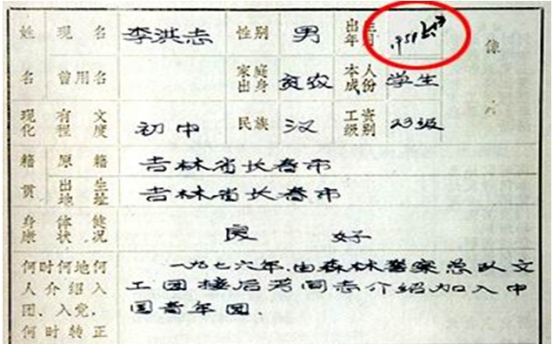 姓 现名 李洪志 性别 男 出生年月
名 曾用名 家庭出身 贫农 本人成份 学生
现有文化程度 初中 民族 汉 工资级别 23级
籍 原籍 吉林省长春市
贯 出生地址 吉林省长春市
身体健康状况 良好
何时何地何 一九七六年.由森林警察总队文
人介绍入 工团
团、入党, 国青年团.
何时转正